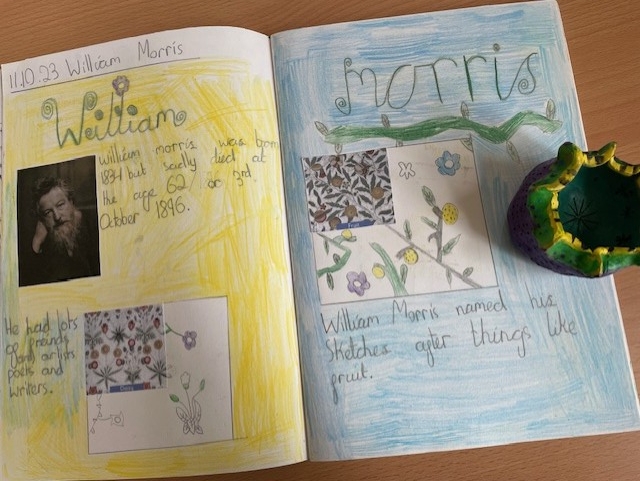 11.10.23 William Morris
William
William morris was born
1834 but sadly died at
the age 62/ or 3rd.
Octber 1896.
He had lots
of
and artists
poets and
writers.
morris
Fruit
William Morris named his
Sketches after things like
fruit.